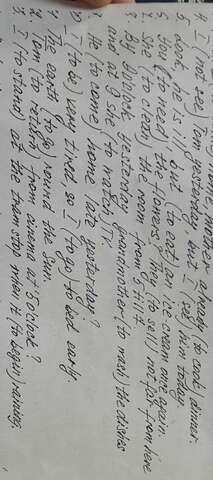 mother already (to cook) dinner.
4. I (not see) Tom yesterday, but I (see) him today.
5. Look, he is ill, but (to eat) an ice cream one again.
6. You (to need) the flowers, they (to sell) not far from here
7. She (to clean) the room from 5 till 7.
8. By o'clock yesterday grandmother (to wash) the dishes
and at 9 she (to watch) TV.
9. He to come home late yesterday?
10. I (to be) very tired, so I (to go) to bed early.
The earth (to go) round the Sun.
Tom to return) from cinema at 5 o'clock?
I (to stand) at the tram stop when it (to begin) raining.